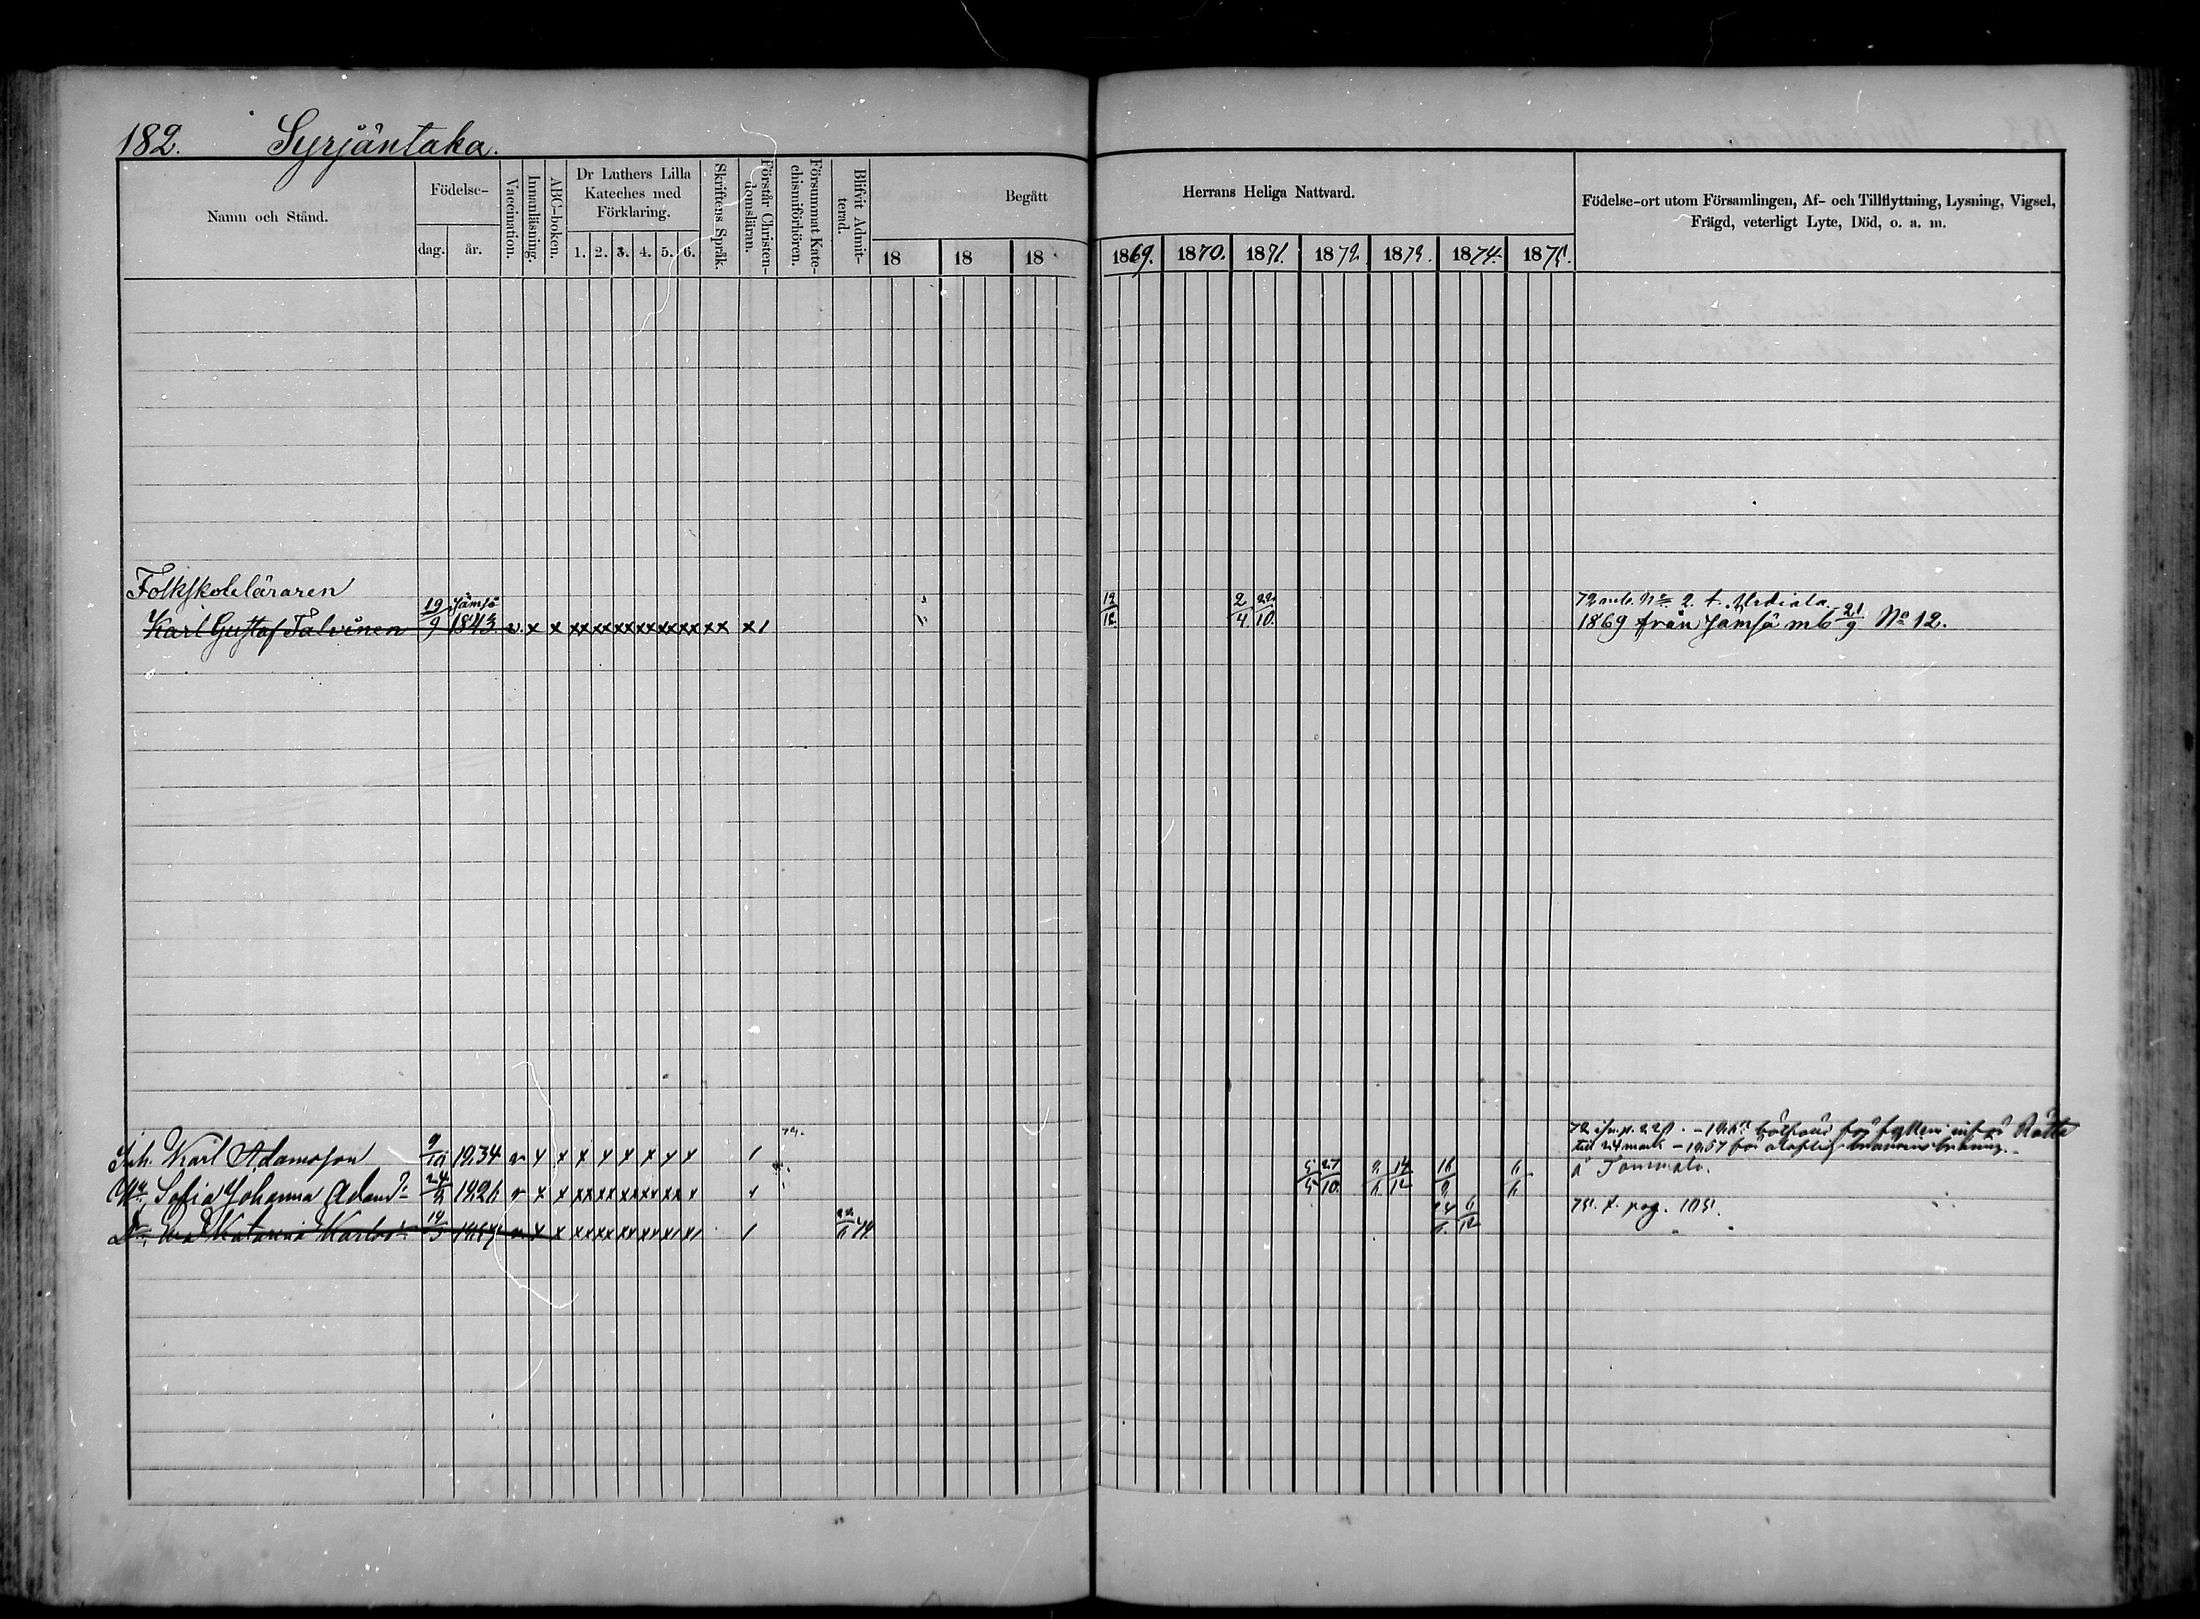 182. Syrjäntaka.
Namn och Stånd.
Födelse-
dag. år.
Vaccination.
Innanläsning.
ABC-boken.
Dr Luthers Lilla
Kateches med
Förklaring.
1. 2. 3. 4. 5. 6.
Skriftens Språk.
Förstår Christen-
domsläran.
Försummat Kate-
chismiförhören.
Blifvit Admit-
terad.
Begått
18 18 18
Herrans Heliga Nattvard.
1869. 1870. 1871. 1872. 1873. 1874. 1875.
Födelse-ort utom Församlingen, Af- och Tillflyttning, Lysning, Vigsel,
Frägd, veterligt Lyte, Död, o. a. m.
Folkskoleläraren
Jämsä
Karl Gustaf Talvinen 19/9 1843 v. x x xx xx xx xx xx xx xx x1 12/12 2/4 22/10
72 mb. No 2. t. Urdiala.
1869 från Jämsä mb 21/9 No 12.
Inh. Karl Adamsson 9/10 1834 v x x x x x x x x
till 24 mark
Sofia Johanna Adamsdr 1826 v x x xx xx xx xx xx x 5/5 27/10
å Tommola.
Eva Katarina Karlsdr 6/12
75. t. pag. 105.